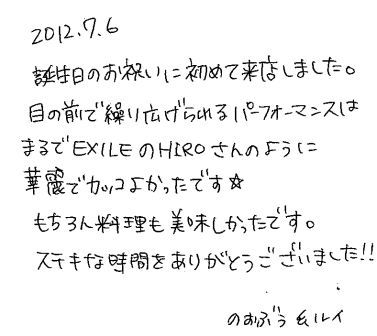 2012.7.6
誕生日のお祝いに初めて来店しました。
目の前で繰り広げられるパーフォーマンスは
まるでEXILEのHIROさんのように
華麗でカッコよかったです☆
もちろん料理も美味しかったです。
ステキな時間をありがとうございました!!
のおぶう &ルイ